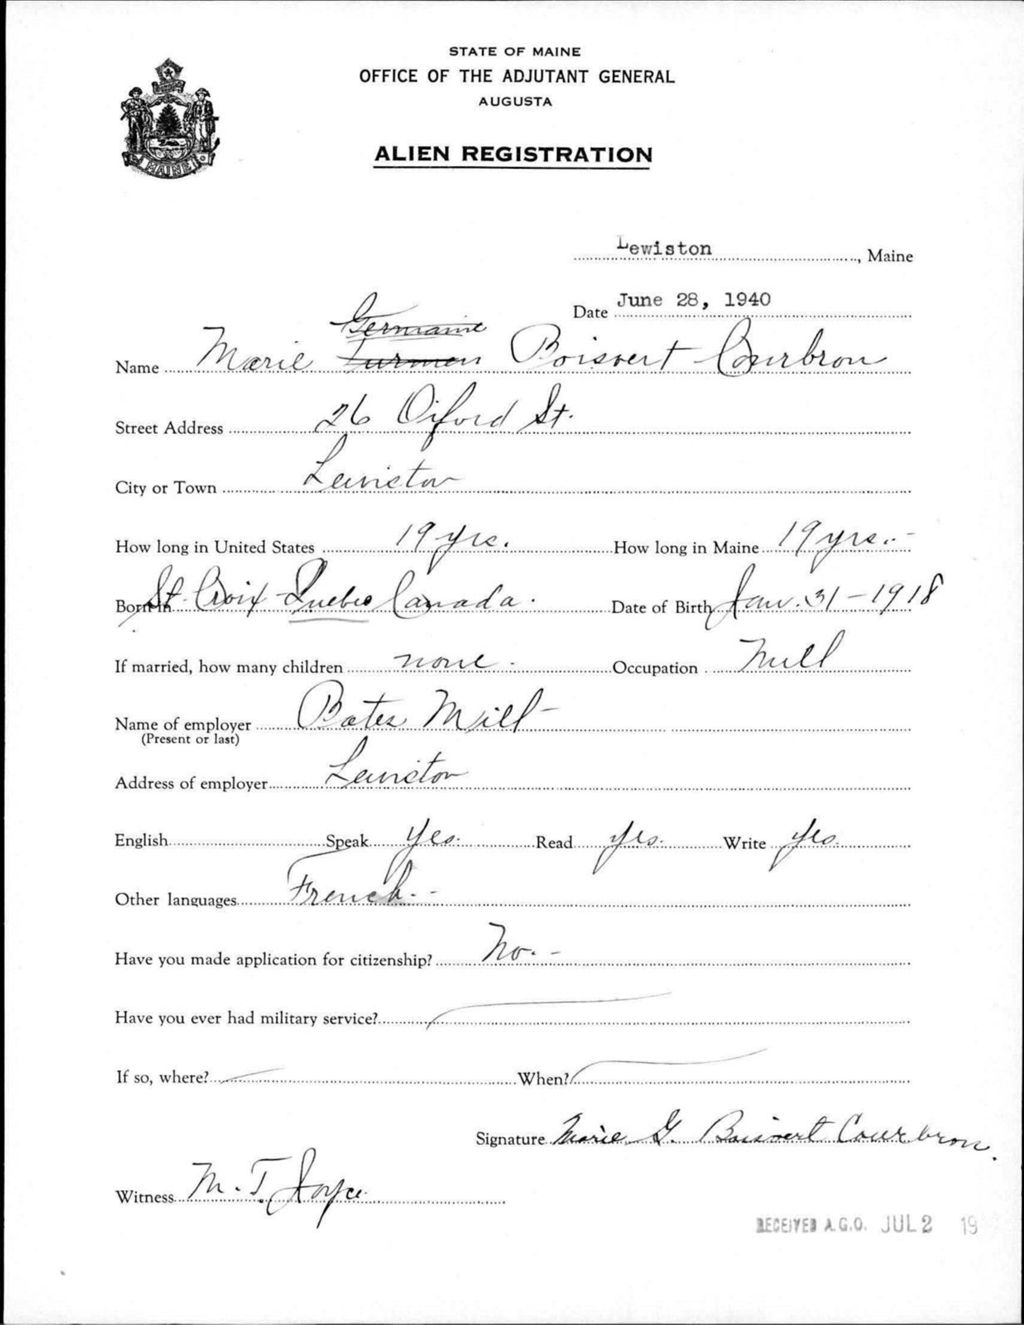 STATE OF MAINE
OFFICE OF THE ADJUTANT GENERAL
AUGUSTA
ALIEN REGISTRATION
Lewiston, Maine
Date June 28, 1940
Germaine
Name Marie Boisvert Courbron
Street Address 26 Oxford St.
City or Town Lewiston
How long in United States 19 yrs. How long in Maine 19 yrs.
Born in St. Croix-Quebec Canada. Date of Birth Jan. 31-1918
If married, how many children none. Occupation Mill
Name of employer Bates Mill
(Present or last)
Address of employer Lewiston
English Speak Yes. Read Yes. Write Yes.
Other languages French
Have you made application for citizenship? No.
Have you ever had military service?
If so, where? When?
Signature Marie G. Boisvert Courbron.
Witness M. T. Joyce
RECEIVED A.G.O. JUL 2 19